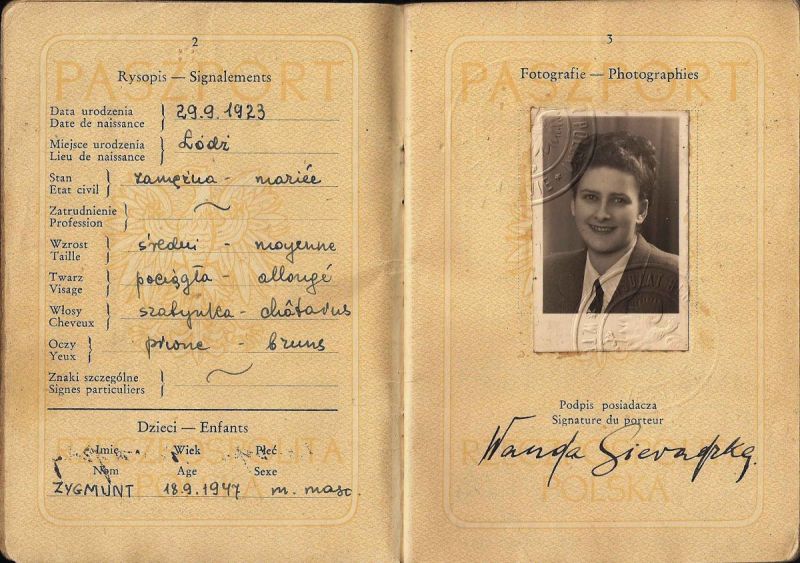 2
PASZPORT
Rysopis — Signalements
Data urodzenia
Date de naissance
29.9.1923
Miejsce urodzenia
Lieu de naissance
Łódź
Stan
Etat civil
zamężna - mariée
Zatrudnienie
Profession
Wzrost
Taille
średni - moyenne
Twarz
Visage
pociągła - allongé
Włosy
Cheveux
szatynka - châtains
Oczy
Yeux
piwne - bruns
Znaki szczególne
Signes particuliers
Dzieci — Enfants
Imię Wiek Płeć
Nom Age Sexe
ZYGMUNT 18.9.1947 m. masc.
POLSKA
3
PASZPORT
Fotografie — Photographies
Podpis posiadacza
Signature du porteur
Wanda Sieradzka
POLSKA